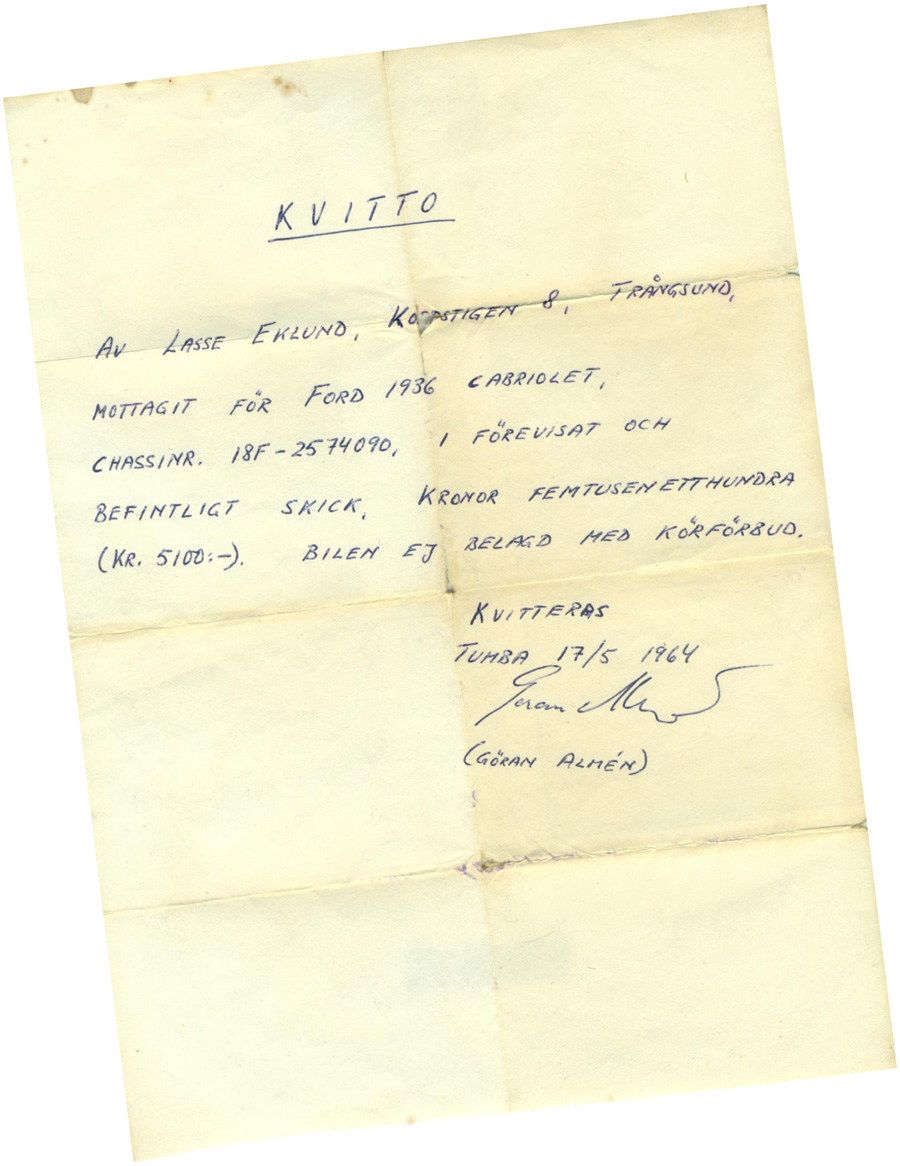 KVITTO
AV LASSE EKLUND, 8, TRÅNGSUND,
MOTTAGIT FÖR FORD 1936 CABRIOLET,
CHASSINR. 18F-2574090, I FÖREVISAT OCH
BEFINTLIGT SKICK, KRONOR FEMTUSENETTHUNDRA
(KR. 5100:-). BILEN EJ BELAGD MED KÖRFÖRBUD.
KVITTERAS
TUMBA 17/5 1964
(GÖRAN ALMÉN)